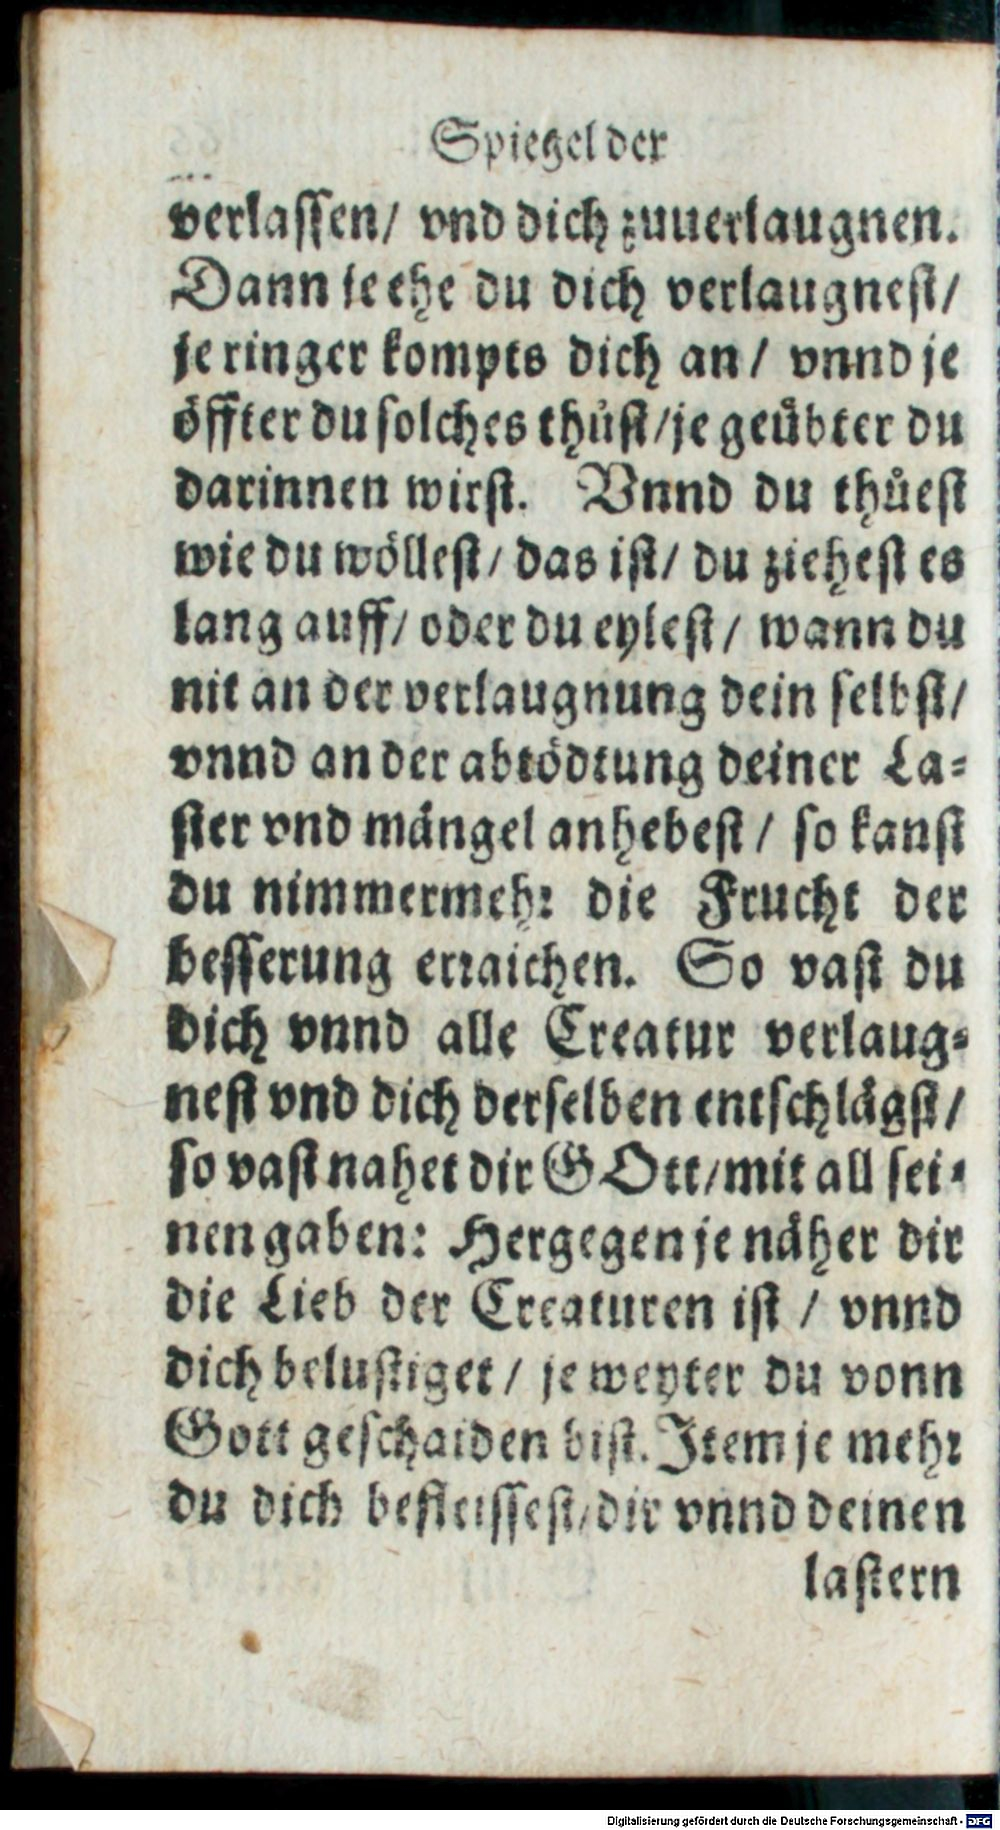 Spiegel der
verlassen/ vnd dich zuuerlaugnen.
Dann je ehe du dich verlaugnest/
je ringer kompts dich an/ vnnd je
öffter du solches thůst/ je geübter du
darinnen wirst. Vnnd du thůest
wie du wöllest/ das ist/ du ziehest es
lang auff/ oder du eylest/ wann du
nit an der verlaugnung dein selbst/
vnnd an der abtödtung deiner La-
ster vnd mängel anhebest/ so kanst
du nimmermehr die Frucht der
besserung erraichen. So vast du
dich vnnd alle Creatur verlaug-
nest vnd dich derselben entschlägst/
so vast nahet dir GOtt/ mit all sei-
nen gaben: Hergegen je näher dir
die Lieb der Creaturen ist / vnnd
dich belustiget/ je weyter du vonn
Gott geschaiden bist. Item je mehr
du dich befleissest/ dir vnnd deinen
lastern
Digitalisierung gefördert durch die Deutsche Forschungsgemeinschaft - DFG